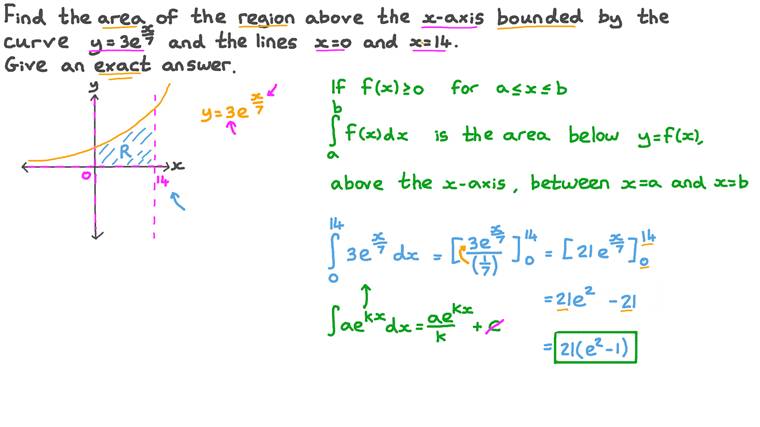 Find the area of the region above the x-axis bounded by the
curve y = 3e^(x/7) and the lines x=0 and x=14.
Give an exact answer.
y
y=3e^(x/7)
R
x
0
14
If f(x)≥0 for a≤x≤b
∫_a^b f(x)dx is the area below y=f(x),
above the x-axis, between x=a and x=b
∫_0^14 3e^(x/7) dx = [3e^(x/7)/(1/7)]_0^14 = [21e^(x/7)]_0^14
= 21e² - 21
∫ae^(kx)dx = ae^(kx)/k + c
= 21(e²-1)